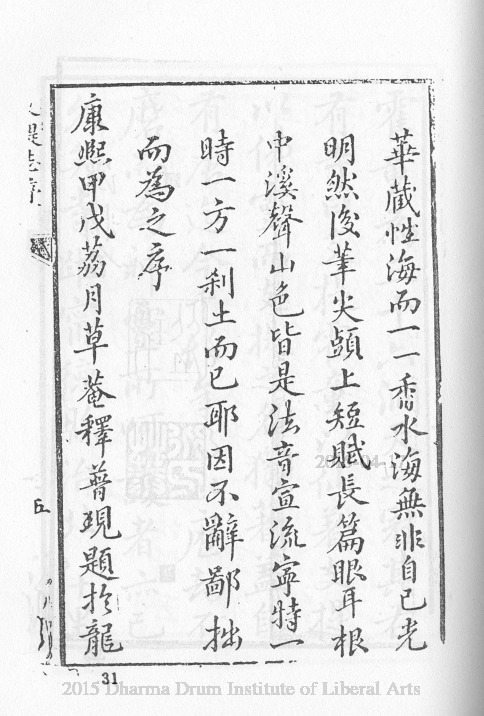 華藏性海而一一香水海無非自己光
明然後筆尖頭上短賦長篇眼耳根
中溪聲山色皆是法音宣流寧特一
時一方一剎土而已耶因不辭鄙拙
而為之序
康熙甲戊荔月草菴釋普現題於龍
五
31
2015 Dharma Drum Institute of Liberal Arts